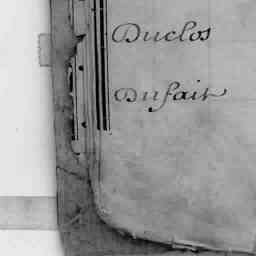 Duclos
Dufait